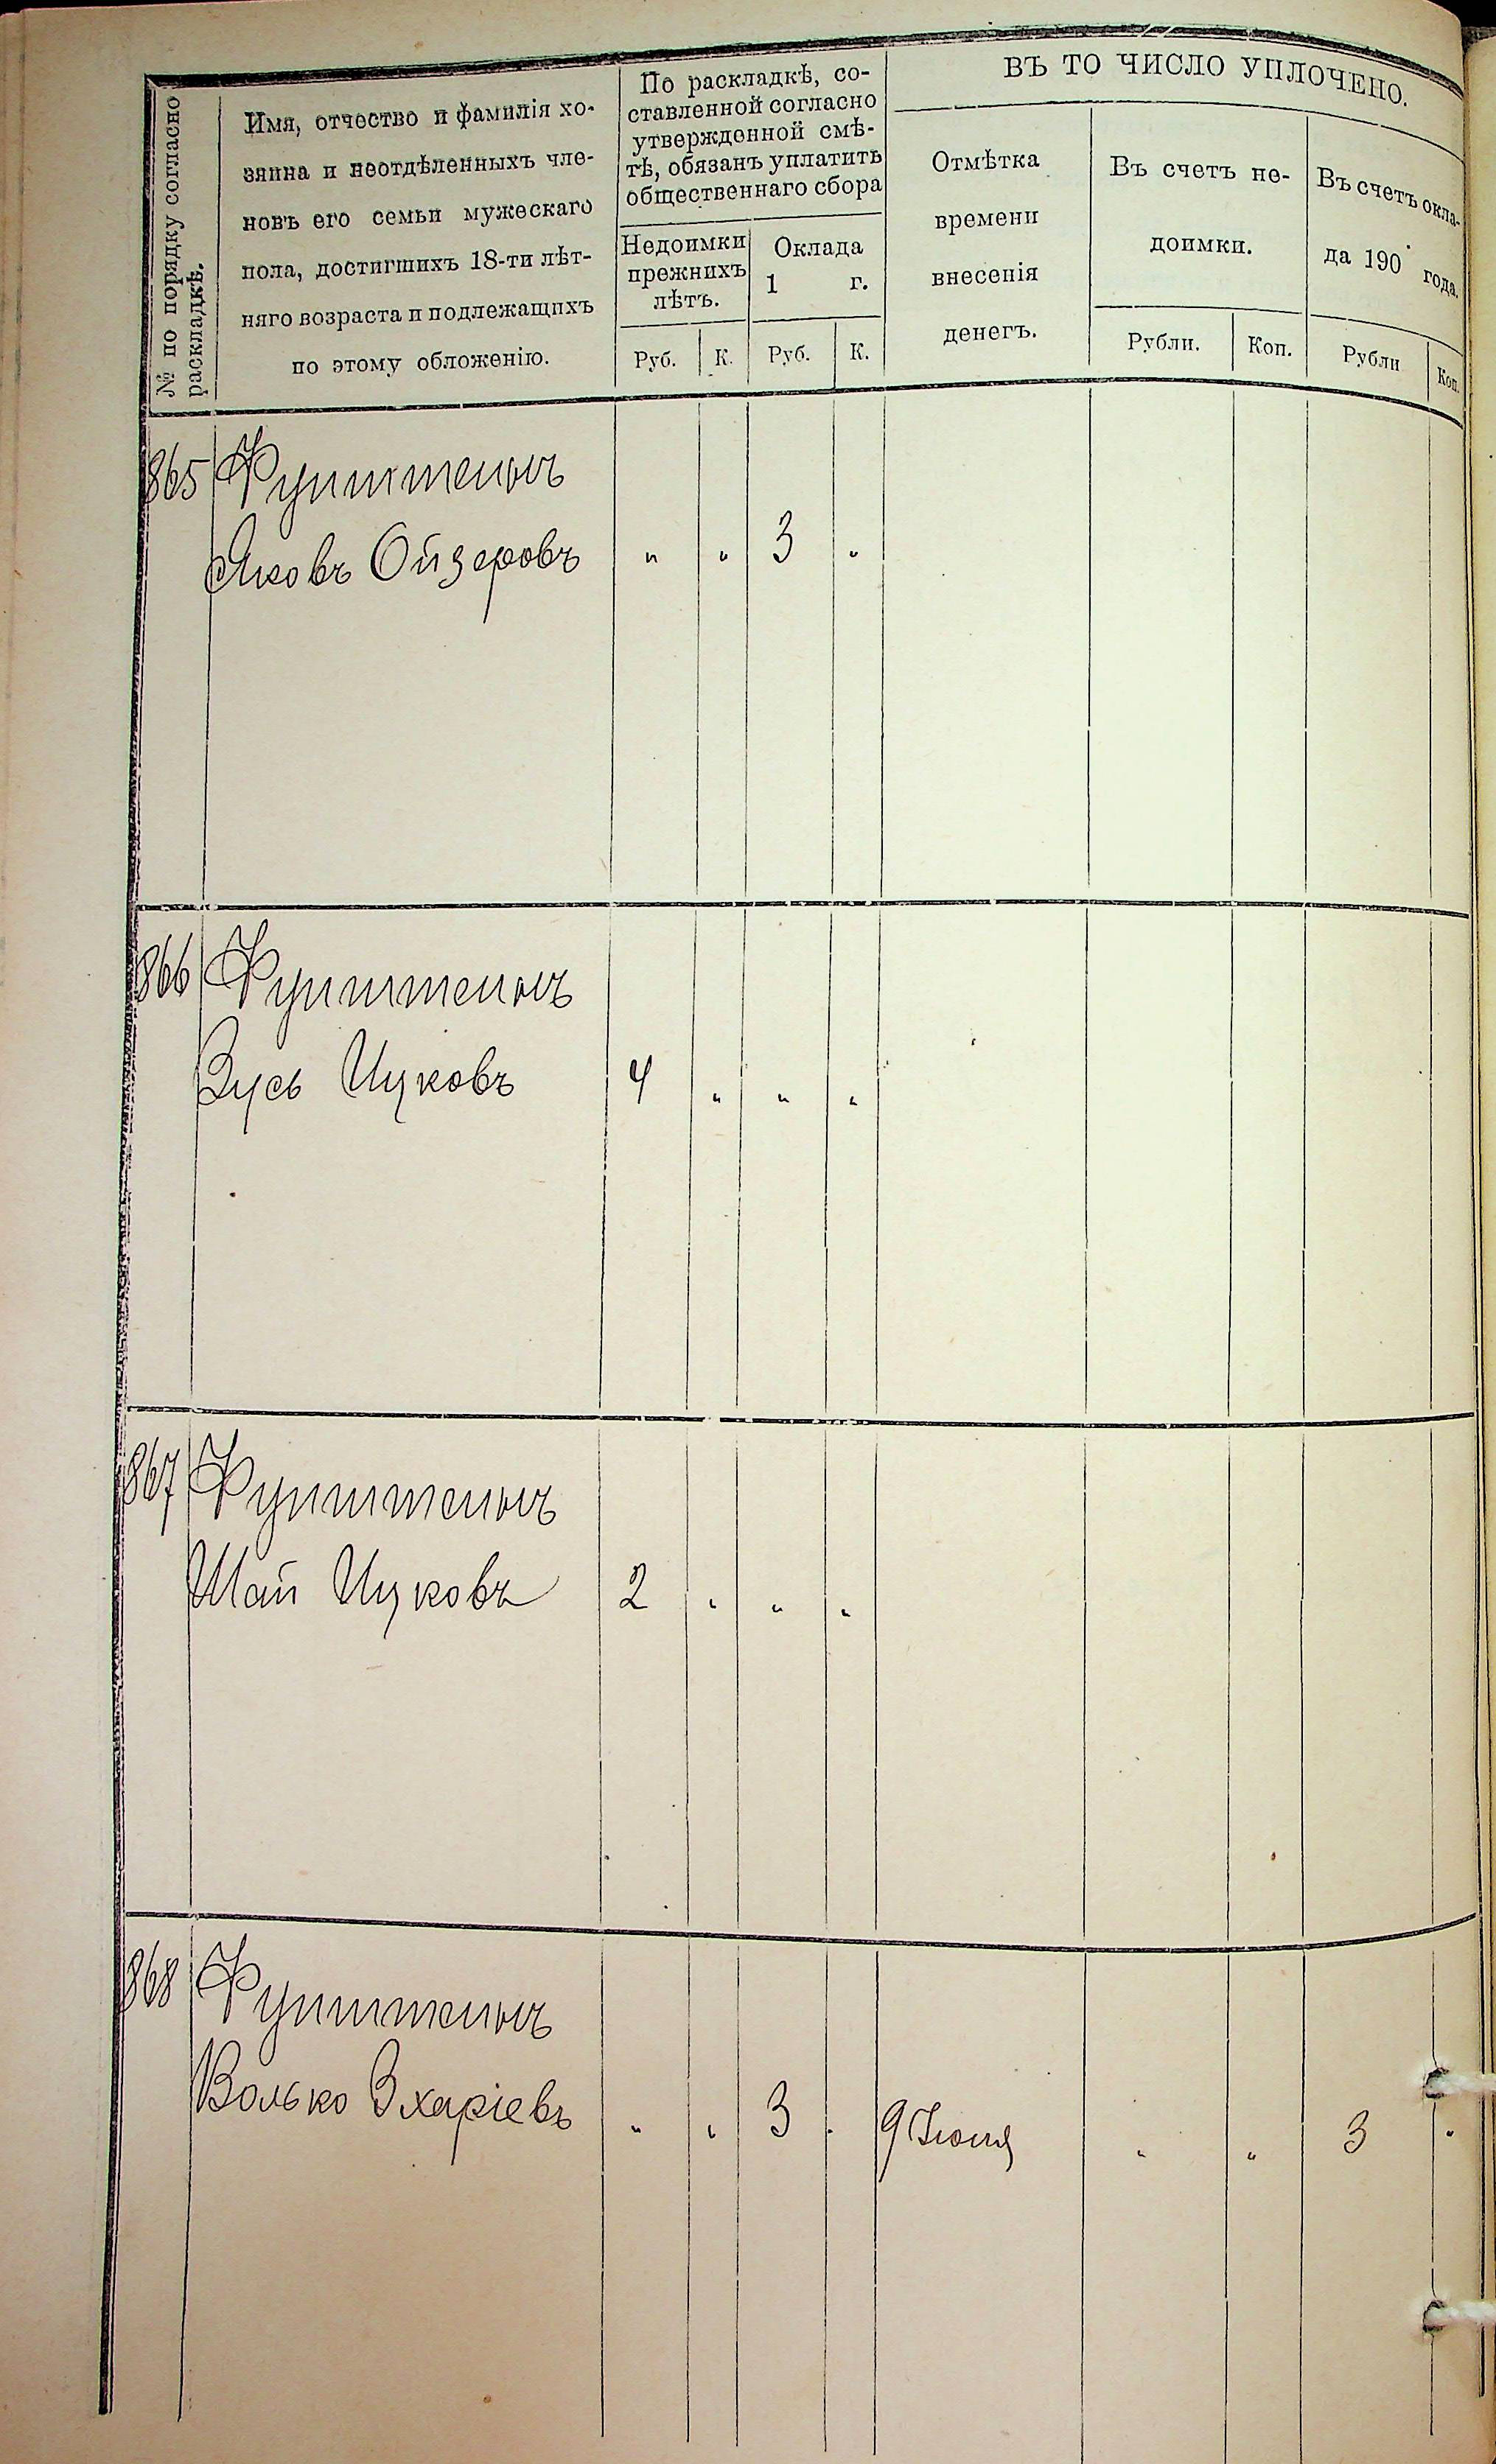 № по порядку согласно
раскладкѣ.
Имя, отчество и фамилія хо-
зяина и неотдѣленныхъ чле-
новъ его семьи мужескаго
пола, достигшихъ 18-ти лѣт-
няго возраста и подлежащихъ
по этому обложенію.
По раскладкѣ, со-
ставленной согласно
утвержденной смѣ-
тѣ, обязанъ уплатить
общественнаго сбора
Недоимки
прежнихъ
лѣтъ.
Оклада
1 г.
Руб. К. Руб. К.
ВЪ ТО ЧИСЛО УПЛОЧЕНО.
Отмѣтка
времени
внесенія
денегъ.
Въ счетъ не-
доимки.
Рубли. Коп.
Въ счетъ окла-
да 190 года.
Рубли Коп.
865 Фунштейнъ
Яковъ Ойзеровъ " " 3 "
866 Фунштейнъ
Зусь Ицковъ 4 " " "
867 Фунштейнъ
Шай Ицковъ 2 " " "
868 Фунштейнъ
Волько Зхаріевъ " " 3 " 9 Іюня " " 3 "